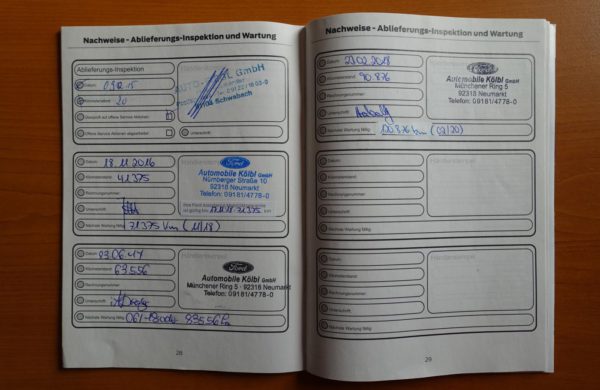 Nachweise - Ablieferungs-Inspektion und Wartung
Ablieferungs-Inspektion
Datum
Kilometerstand 20
Überprüft auf offene Service Aktionen
Offene Service Aktionen abgearbeitet
GmbH
Schwabach
Unterschrift
Datum 18.11.2016
Kilometerstand 41375
Rechnungsnummer
Unterschrift
Nächste Wartung fällig 71375 km (11/18)
Ford
Automobile Kölbl GmbH
Nürnberger Straße 10
92318 Neumarkt
Telefon: 09181/4778-0
Datum 23.06.17
Kilometerstand 63556
Rechnungsnummer
Unterschrift
Nächste Wartung fällig
Händlerstempel
Ford
Automobile Kölbl GmbH
Münchener Ring 5 · 92318 Neumarkt
Telefon: 09181/4778-0
28
Nachweise - Ablieferungs-Inspektion und Wartung
Datum 23.02.2018
Kilometerstand 90.876
Rechnungsnummer
Unterschrift
Nächste Wartung fällig 120.876 km (02/20)
Ford
Automobile Kölbl GmbH
Münchener Ring 5
92318 Neumarkt
Telefon: 09181/4778-0
Datum
Kilometerstand
Rechnungsnummer
Unterschrift
Nächste Wartung fällig
Händlerstempel
Datum
Kilometerstand
Rechnungsnummer
Unterschrift
Nächste Wartung fällig
Händlerstempel
29